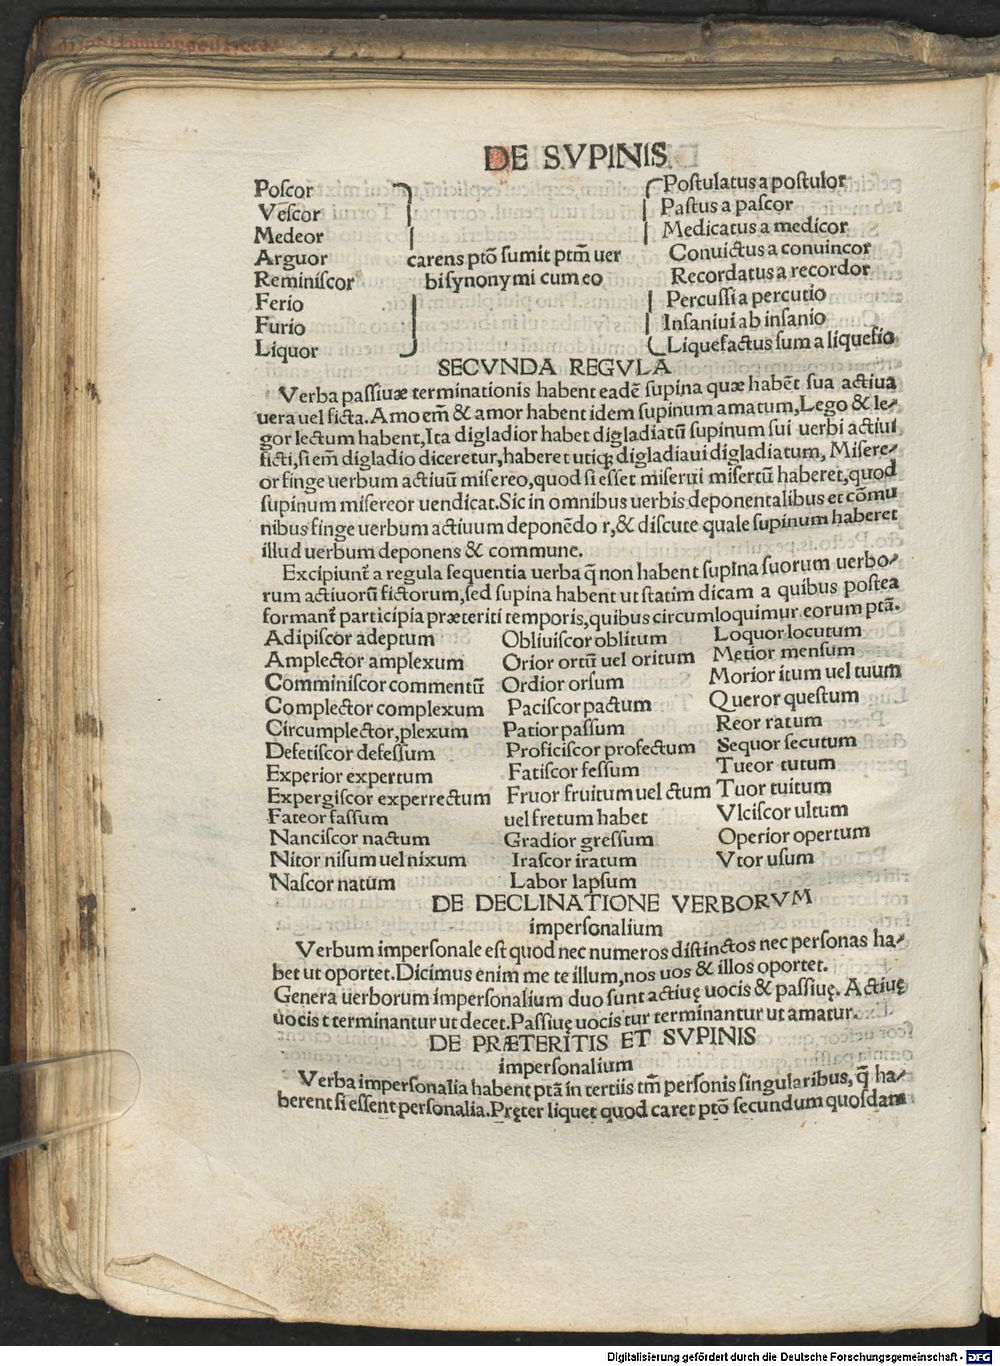 DE SVPINIS
Poſcor
Veſcor
Medeor
Arguor
Reminiſcor
Ferio
Furio
Liquor
carens ptō ſumit ptm̄ uer
bi ſynonymi cum eo
Poſtulatus a poſtulor
Paſtus a paſcor
Medicatus a medicor
Conuictus a conuincor
Recordatus a recordor
Percuſſi a percutio
Inſaniui ab inſanio
Liquefactus ſum a liquefio
SECVNDA REGVLA
Verba paſſiuæ terminationis habent eadē ſupina quæ habēt ſua actiua
uera uel ficta. Amo em̄ & amor habent idem ſupinum amatum, Lego & le⸗
gor lectum habent, Ita digladior habet digladiatū ſupinum ſui uerbi actiui
ficti, ſi em̄ digladio diceretur, haberet utiqꝫ digladiaui digladiatum, Miſere⸗
or finge uerbum actiuū miſereo, quod ſi eſſet miſerui miſertū haberet, quod
ſupinum miſereor uendicat. Sic in omnibus uerbis deponentalibus et cōmu
nibus finge uerbum actiuum deponēdo r, & diſcute quale ſupinum haberet
illud uerbum deponens & commune.
Excipiunt̄ a regula ſequentia uerba q̄ non habent ſupina ſuorum uerbo⸗
rum actiuorū fictorum, ſed ſupina habent ut ſtatim dicam a quibus poſtea
formant̄ participia præteriti temporis, quibus circumloquimur eorum ptā.
Adipiſcor adeptum
Amplector amplexum
Comminiſcor commentū
Complector complexum
Circumplector, plexum
Defetiſcor defeſſum
Experior expertum
Expergiſcor experrectum
Fateor faſſum
Nanciſcor nactum
Nitor niſum uel nixum
Naſcor natum
Obliuiſcor oblitum
Orior ortū uel oritum
Ordior orſum
Paciſcor pactum
Patior paſſum
Proficiſcor profectum
Fatiſcor feſſum
Fruor fruitum uel ctum
uel fretum habet
Gradior greſſum
Iraſcor iratum
Labor lapſum
Loquor locutum
Metior menſum
Morior itum uel tuum
Queror queſtum
Reor ratum
Sequor ſecutum
Tueor tutum
Tuor tuitum
Vlciſcor ultum
Operior opertum
Vtor uſum
DE DECLINATIONE VERBORVM
imperſonalium
Verbum imperſonale eſt quod nec numeros diſtinctos nec perſonas ha⸗
bet ut oportet. Dicimus enim me te illum, nos uos & illos oportet.
Genera uerborum imperſonalium duo ſunt actiuę uocis & paſſiuę. Actiuę
uocis t terminantur ut decet. Paſſiuę uocis tur terminantur ut amatur.
DE PRÆTERITIS ET SVPINIS
imperſonalium
Verba imperſonalia habent ptā in tertiis tm̄ perſonis ſingularibus, q̄ ha⸗
berent ſi eſſent perſonalia. Pręter liquet quod caret ptō ſecundum quoſdam
Digitalisierung gefördert durch die Deutsche Forschungsgemeinschaft - DFG